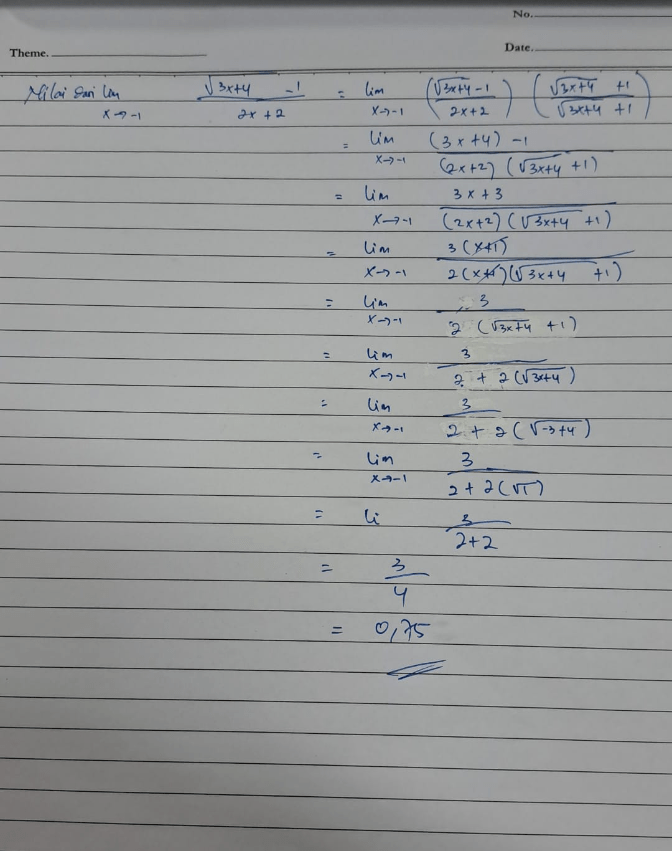 No.
Theme.
Date.
Nilai dari lim x→-1 (√(3x+4) - 1)/(2x+2) = lim x→-1 ((√(3x+4) - 1)/(2x+2)) ((√(3x+4) + 1)/(√(3x+4) + 1))
= lim x→-1 ((3x+4) - 1)/((2x+2)(√(3x+4) + 1))
= lim x→-1 (3x+3)/((2x+2)(√(3x+4) + 1))
= lim x→-1 (3(x+1))/(2(x+1)(√(3x+4) + 1))
= lim x→-1 3/(2(√(3x+4) + 1))
= lim x→-1 3/(2 + 2(√(3x+4)))
= lim x→-1 3/(2 + 2(√(-3+4)))
= lim x→-1 3/(2 + 2(√1))
= li 3/(2+2)
= 3/4
= 0,75